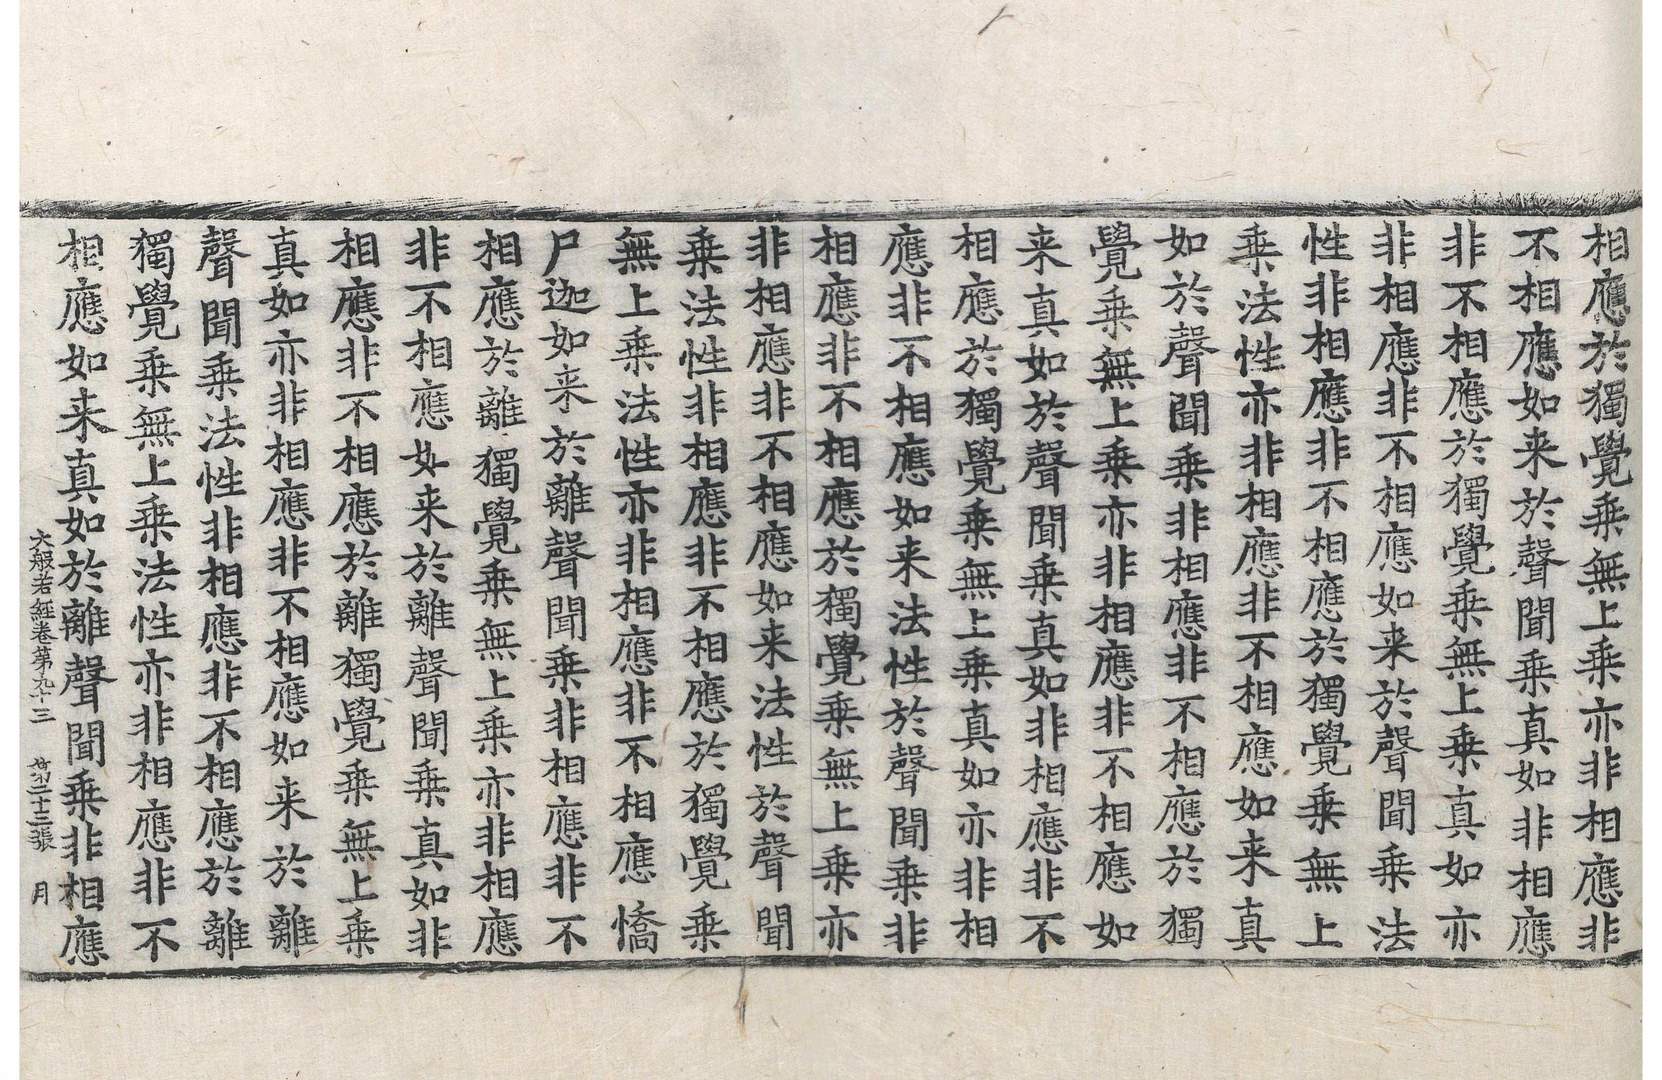 相應於獨覺乗無上乗亦非相應非
不相應如来於聲聞乗真如非相應
非不相應於獨覺乗無上乗真如亦
非相應非不相應如来於聲聞乗法
性非相應非不相應於獨覺乗無上
乗法性亦非相應非不相應如来真
如於聲聞乗非相應非不相應於獨
覺乗無上乗亦非相應非不相應如
来真如於聲聞乗真如非相應非不
相應於獨覺乗無上乗真如亦非相
應非不相應如来法性於聲聞乗非
相應非不相應於獨覺乗無上乗亦
非相應非不相應如来法性於聲聞
乗法性非相應非不相應於獨覺乗
無上乗法性亦非相應非不相應憍
尸迦如来於離聲聞乗非相應非不
相應於離獨覺乗無上乗亦非相應
非不相應如来於離聲聞乗真如非
相應非不相應於離獨覺乗無上乗
真如亦非相應非不相應如来於離
聲聞乗法性非相應非不相應於離
獨覺乗無上乗法性亦非相應非不
相應如来真如於離聲聞乗非相應
大般若經卷第九十三 二十三張 月